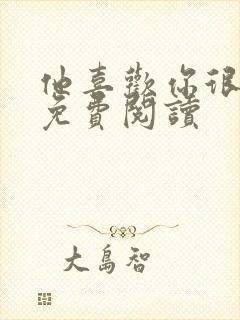 他喜歡你很
免費閱讀
大島智